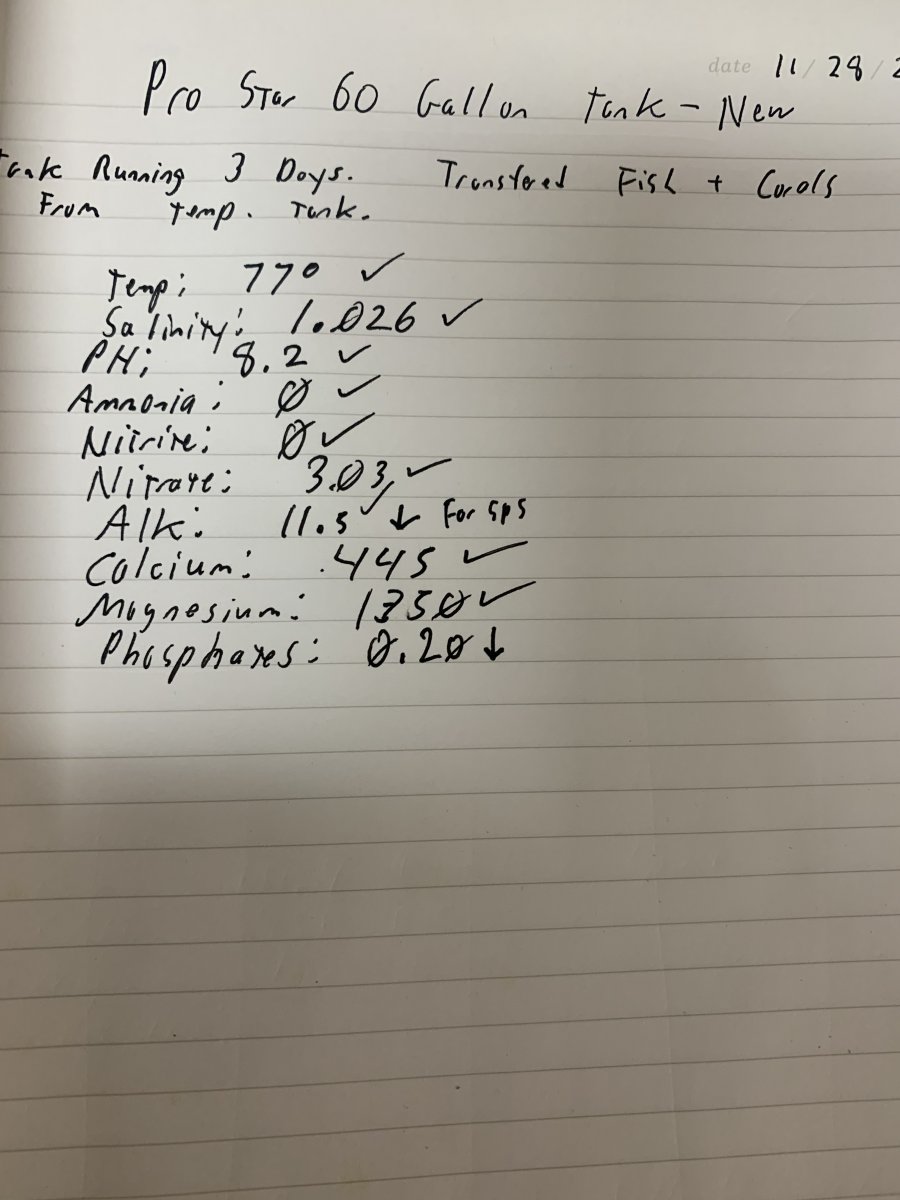 date 11/28/2
Pro Star 60 Gallon Tank - New
Tank Running 3 Days. Transfered Fish + Corols
From Temp. Tank.
Temp: 77° ✓
Salinity: 1.026 ✓
PH: 8.2 ✓
Ammonia: 0 ✓
Nitrite: 0 ✓
Nitrate: 3.03 ✓
Alk: 11.5 ✓ ↓ For sps
Calcium: 445 ✓
Magnesium: 1350 ✓
Phosphates: 0.20 ↓